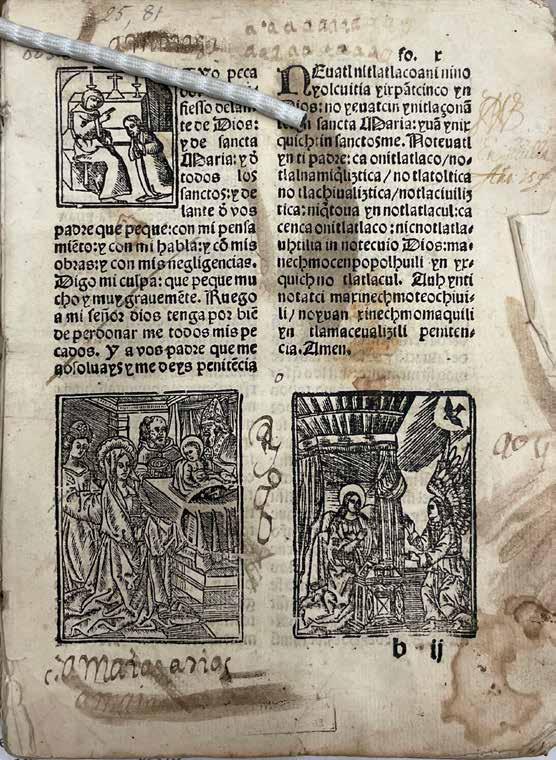 25, 81
fo. x
peca
fiesso delan
te de Dios:
y de sancta
Maria: y d̄
todos los
sanctos: y de
lante d̄ vos
padre que peque: con mi pensa
miēto: y con mi habla: y cō mis
obras: y con mis negligencias.
Digo mi culpa: que peque mu
cho y muy grauemēte. Ruego
a mi señor dios tenga por biē
de perdonar me todos mis pe
cados. Y a vos padre que me
absoluays y me deys penitēcia
NEuatl nitlatlacoani nino
yolcuitia yixpātzinco yn
Dios: no yeuatzin ynitlaçonā
sancta Maria: yuā ynix
quich: in sanctosme. Noteuatl
yn ti padre: ca onitlatlaco/ no
tlalnamiq̄liztica/ no tlatoltica
no tlachiualiztica/ notlaciuiliz
tica: niq̄toua yn notlatlacul: ca
cenca onitlatlaco: nicnotlatla
uhtilia in notecuio Dios: ma
nechmocenpopolhuili yn yx
quich no tlatlacul. Auh ynti
notatzi maxinechmoteochiui
li/ no yuan xinechmomaquili
yn tlamaceualizili peniten
cia. Amen.
b ij